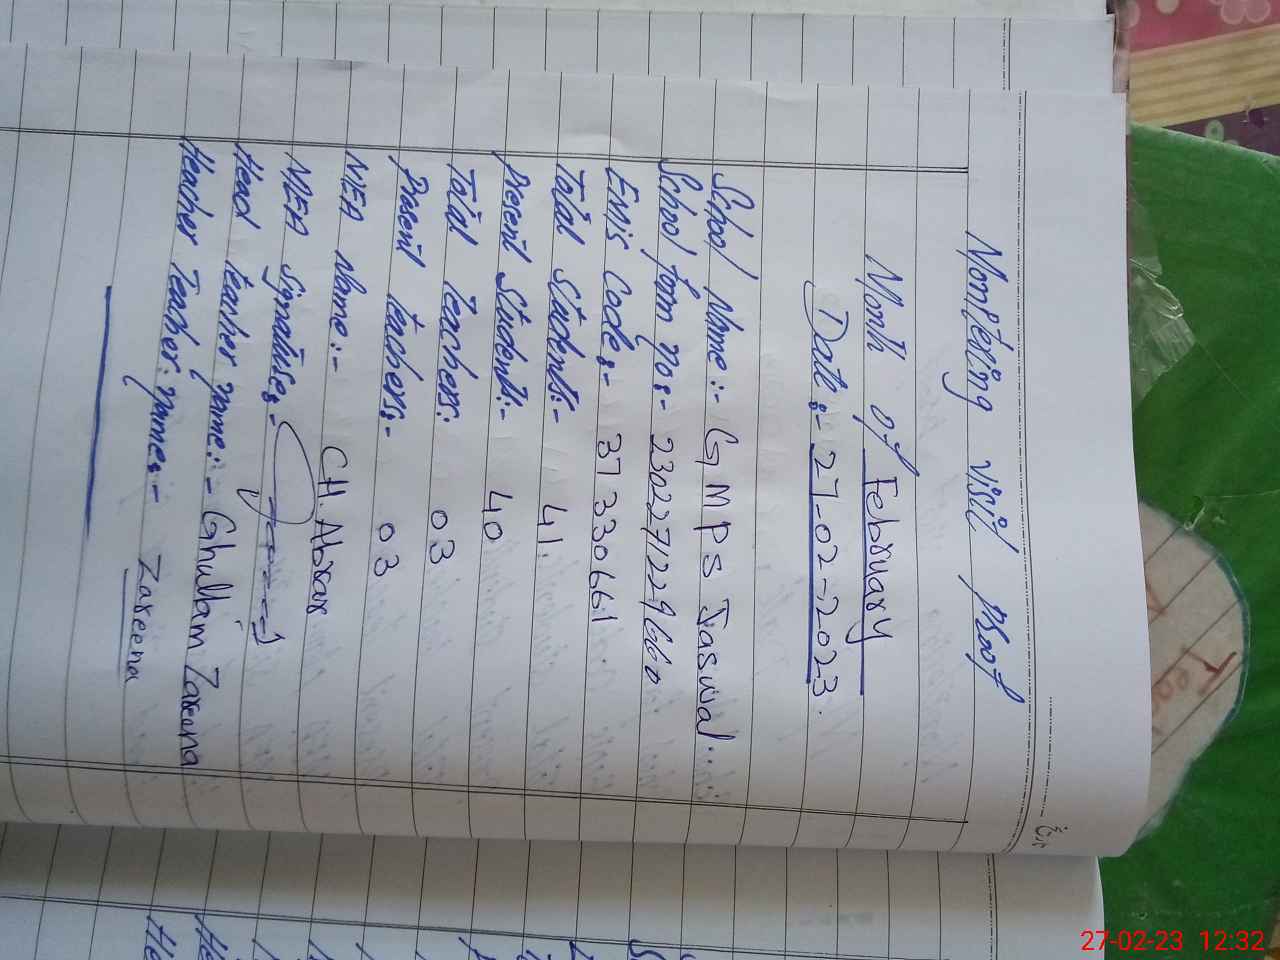 Monptering visit Proof
Month of February
Date :- 27-02-2023.
School Name :- GMPS Jaswal.
School form no :- 2302271229660
Emis Code :- 37330661
Total Students :- 41.
Present Students :- 40
Total Teachers: 03
Present teachers :- 03
MEA Name :- CH. Abrar
MEA Signatures :-
Head teacher name :- Ghullam Zareena
Heacher Teacher name :- Zareena
27-02-23 12:32